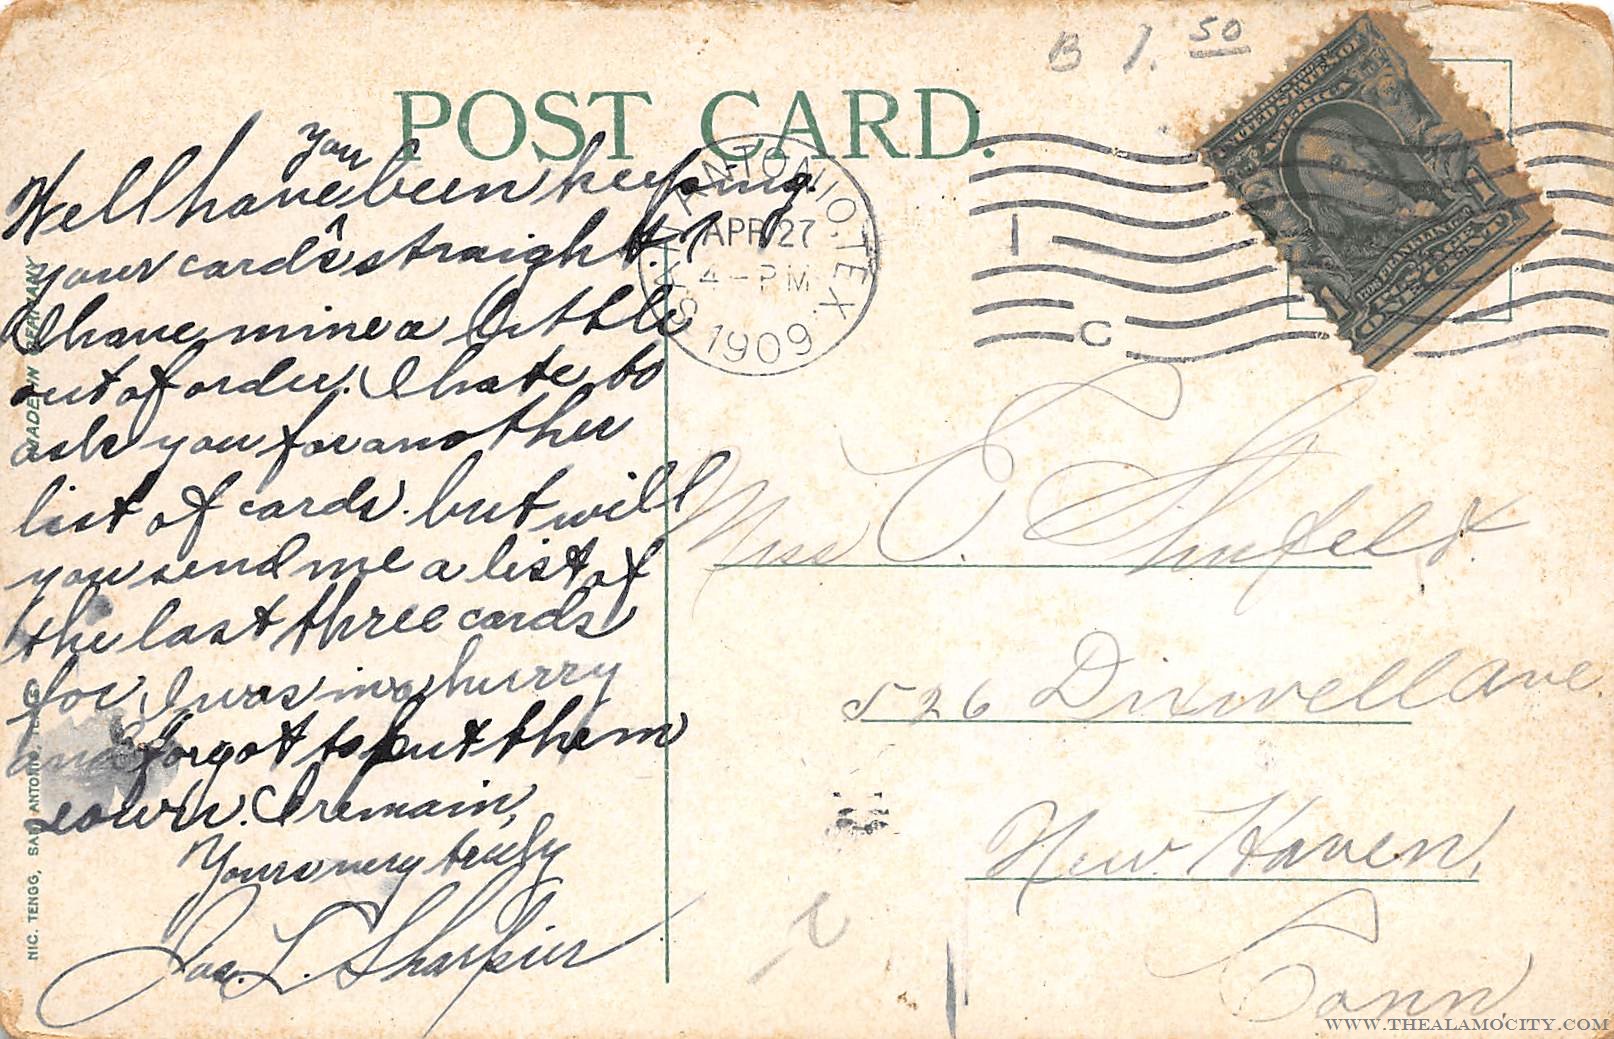 B 1.50
POST CARD.
SAN ANTONIO. TEX.
APR 27
4 - PM
1909
1
C
UNITED STATES OF AMERICA
1706 FRANKLIN 1790
1 ONE CENT 1
you
Well have ^ been keeping
your cards straight. ?
I have mine a little
out of order. I hate to
ask you for another
list of cards. but will
you send me a list of
the last three cards
for I was in a hurry
and forgot to put them
down. I remain,
Yours very truly
Jas. L. Sharpier
Miss E. Shufeldt.
526 Dixwell Ave.
New Haven,
Conn,
MADE IN GERMANY
NIC. TENGG, SAN ANTONIO, TEXAS
WWW.THEALAMOCITY.COM